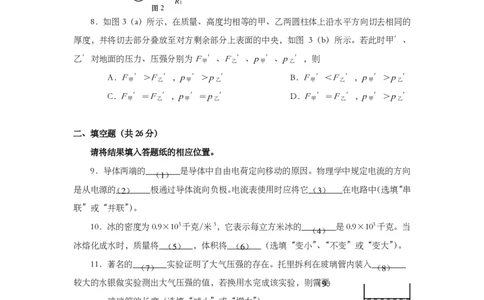 R₁
图 2
8．如图 3（a）所示，在质量、高度均相等的甲、乙两圆柱体上沿水平方向切去相同的
厚度，并将切去部分叠放至对方剩余部分上表面的中央，如图 3（b）所示。若此时甲′、
乙′对地面的压力、压强分别为 F甲′、F乙′、p甲′、p乙′，则
A．F甲′＞F乙′，p甲′＞p乙′ B．F甲′＜F乙′，p甲′＞p乙′
C．F甲′＝F乙′，p甲′＝p乙′ D．F甲′＝F乙′，p甲′＞p乙′
二、填空题（共 26 分）
请将结果填入答题纸的相应位置。
9．导体两端的（1）是导体中自由电荷定向移动的原因。物理学中规定电流的方向
是从电源的（2）极通过导体流向负极。电流表使用时应将它（3）在电路中（选填“串
联”或“并联”）。
10．冰的密度为 0.9×10³ 千克/米³，它表示每立方米冰的（4）是 0.9×10³ 千克。当
冰熔化成水时，质量将（5），体积将（6）（选填“变小”、“不变”或“变大”）。
11．著名的（7）实验证明了大气压强的存在。托里拆利在玻璃管内装入（8）
较大的水银做实验测出大气压强的值，若换用水完成该实验，则需要（9）